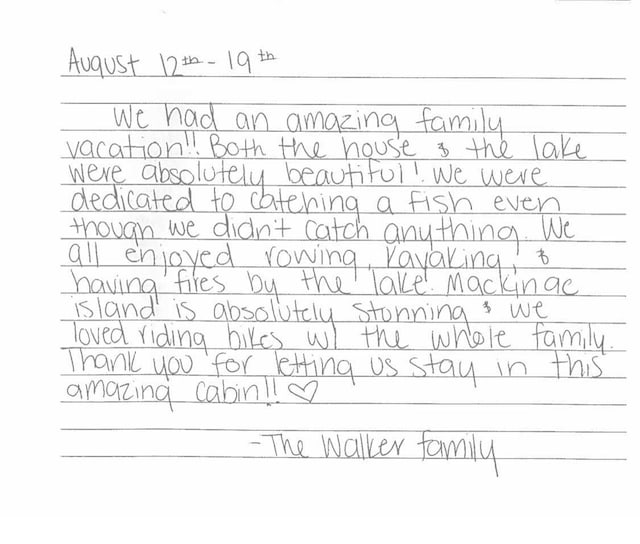 August 12th - 19th
We had an amazing family
vacation!! Both the house & the lake
were absolutely beautiful! We were
dedicated to catching a fish even
though we didn't catch anything. We
all enjoyed rowing, kayaking, &
having fires by the lake. Mackinac
island is absolutely stunning & we
loved riding bikes w/ the whole family.
Thank you for letting us stay in this
amazing cabin!! ♡
-The Walker family